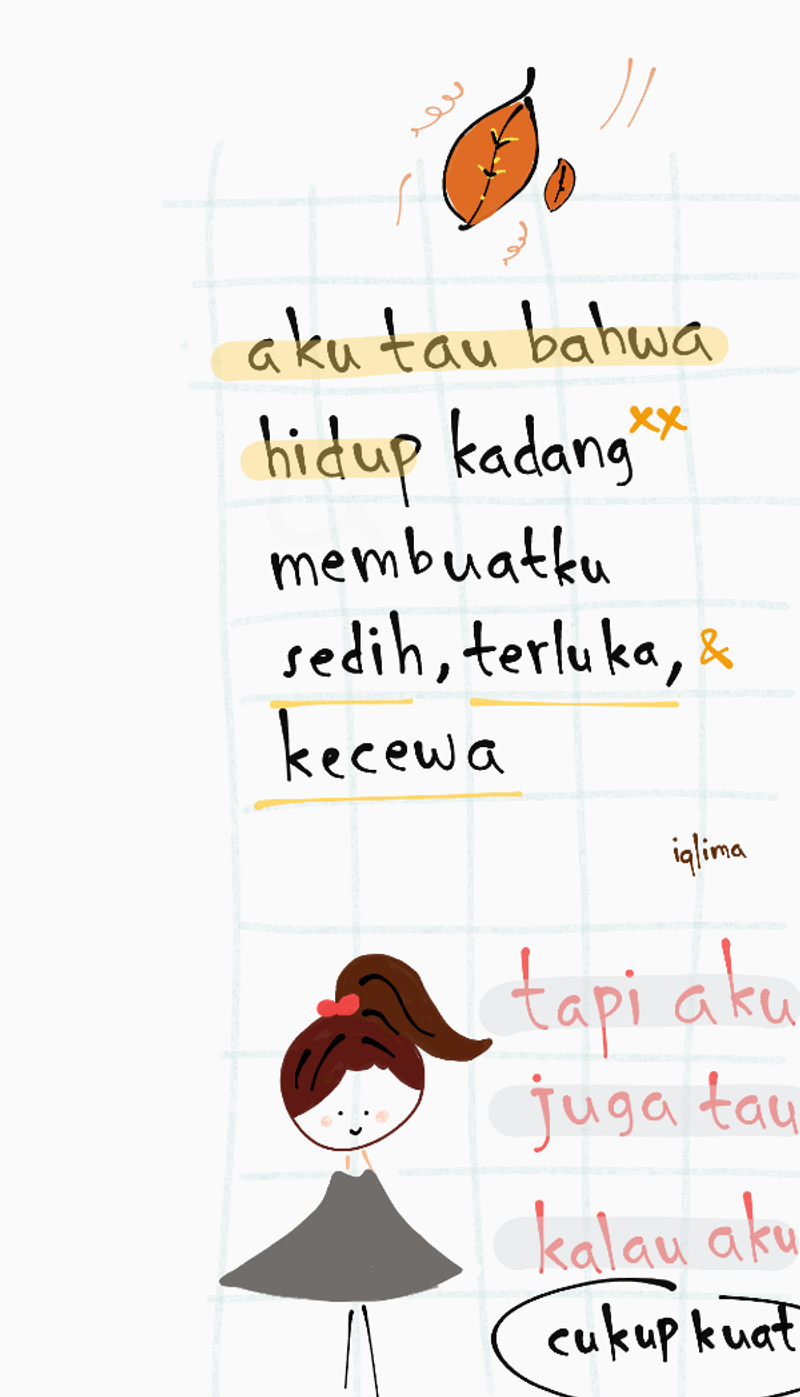 aku tau bahwa
hidup kadang xx
membuatku
sedih, terluka, &
kecewa
iqlima
tapi aku
juga tau
kalau aku
cukup kuat